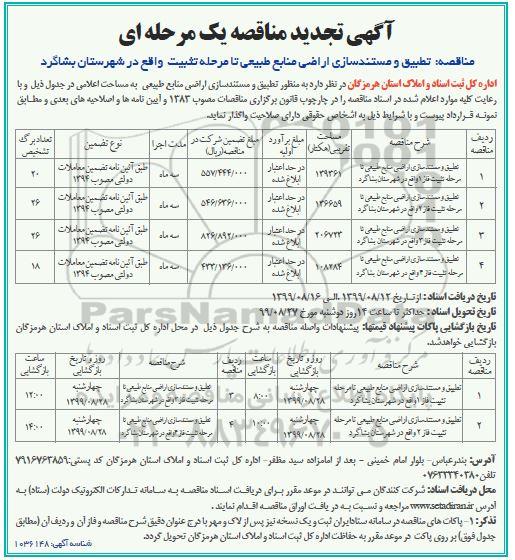 آگهی تجدید مناقصه یک مرحله ای
مناقصه: تطبیق و مستندسازی اراضی منابع طبیعی تا مرحله تثبیت واقع در شهرستان بشاگرد
اداره کل ثبت اسناد و املاک استان هرمزگان در نظر دارد به منظور تطبیق و مستندسازی اراضی منابع طبیعی به مساحت اعلامی در جدول ذیل و با
رعایت کلیه موارد اعلام شده در اسناد مناقصه را در چارچوب قانون برگزاری مناقصات مصوب ۱۳۸۳ و آیین نامه ها و اصلاحیه های بعدی و مطابق
نمونه قرارداد پیوست و با شرایط ذیل به اشخاص حقوقی دارای صلاحیت واگذار نماید.
ردیف مناقصه | شرح مناقصه | مساحت تقریبی(هکتار) | مبلغ برآورد اولیه | مبلغ تضمین شرکت در مناقصه(ریال) | مدت اجرا | نوع تضمین | تعداد برگ تشخیص
۱ | تطبیق و مستندسازی اراضی منابع طبیعی تا مرحله تثبیت فاز ۱ واقع در شهرستان بشاگرد | ۱۳۹۳۶۱ | در حد اعتبار ابلاغ شده | ۵۵۷/۴۴۴/۰۰۰ | سه ماه | طبق آئین نامه تضمین معاملات دولتی مصوب ۱۳۹۴ | ۲۰
۲ | تطبیق و مستندسازی اراضی منابع طبیعی تا مرحله تثبیت فاز ۲ واقع در شهرستان بشاگرد | ۱۳۶۶۵۹ | در حد اعتبار ابلاغ شده | ۵۴۶/۶۳۶/۰۰۰ | سه ماه | طبق آئین نامه تضمین معاملات دولتی مصوب ۱۳۹۴ | ۲۶
۳ | تطبیق و مستندسازی اراضی منابع طبیعی تا مرحله تثبیت فاز ۳ واقع در شهرستان بشاگرد | ۲۰۶۷۲۳ | در حد اعتبار ابلاغ شده | ۸۲۶/۸۹۲/۰۰۰ | سه ماه | طبق آئین نامه تضمین معاملات دولتی مصوب ۱۳۹۴ | ۲۶
۴ | تطبیق و مستندسازی اراضی منابع طبیعی تا مرحله تثبیت فاز ۴ واقع در شهرستان بشاگرد | ۱۰۸۲۸۴ | در حد اعتبار ابلاغ شده | ۴۳۳/۱۳۶/۰۰۰ | سه ماه | طبق آئین نامه تضمین معاملات دولتی مصوب ۱۳۹۴ | ۱۸
تاریخ دریافت اسناد: از تاریخ ۱۳۹۹/۰۸/۱۲ الی ۱۳۹۹/۰۸/۱۶
تاریخ تحویل اسناد: حداکثر تا ساعت ۱۴ روز دوشنبه مورخ ۹۹/۰۸/۲۷
تاریخ بازگشایی پاکات پیشنهاد قیمتها: پیشنهادات واصله مناقصه به شرح جدول ذیل در محل اداره کل ثبت اسناد و املاک استان هرمزگان
بازگشایی خواهد شد.
ردیف مناقصه | شرح مناقصه | روز و تاریخ بازگشایی | ساعت بازگشایی | ردیف مناقصه | شرح مناقصه | روز و تاریخ بازگشایی | ساعت بازگشایی
۱ | تطبیق و مستندسازی اراضی منابع طبیعی تا مرحله تثبیت فاز ۱ واقع در شهرستان بشاگرد | چهارشنبه ۱۳۹۹/۰۸/۲۸ | ۸:۰۰ | ۳ | تطبیق و مستندسازی اراضی منابع طبیعی تا مرحله تثبیت فاز ۳ واقع در شهرستان بشاگرد | چهارشنبه ۱۳۹۹/۰۸/۲۸ | ۱۲:۰۰
۲ | تطبیق و مستندسازی اراضی منابع طبیعی تا مرحله تثبیت فاز ۲ واقع در شهرستان بشاگرد | چهارشنبه ۱۳۹۹/۰۸/۲۸ | ۱۰:۰۰ | ۴ | تطبیق و مستندسازی اراضی منابع طبیعی تا مرحله تثبیت فاز ۴ واقع در شهرستان بشاگرد | چهارشنبه ۱۳۹۹/۰۸/۲۸ | ۱۴:۰۰
آدرس: بندرعباس- بلوار امام خمینی - بعد از امامزاده سید مظفر- اداره کل ثبت اسناد و املاک استان هرمزگان کد پستی: ۷۹۱۶۷۶۳۸۵۹
تلفن: ۰۷۶۳۳۳۴۰۲۸۰
محل دریافت اسناد: شرکت کنندگان می توانند در موعد مقرر برای دریافت اسناد مناقصه به سامانه تدارکات الکترونیک دولت (ستاد) به
آدرس www.setadiran.ir مراجعه و نسبت به دریافت اوراق مناقصه اقدام نمایند.
تذکر: ۱- پاکات های مناقصه در سامانه ستاد ایران ثبت و یک نسخه نیز پس از لاک و مهر با درج عنوان دقیق شرح مناقصه و فاز آن و ردیف آن (مطابق
جدول فوق) بر روی پاکت در موعد مقرر به اداره کل ثبت اسناد و املاک استان هرمزگان تحویل گردد.
شناسه آگهی: ۱۰۳۶۱۴۸